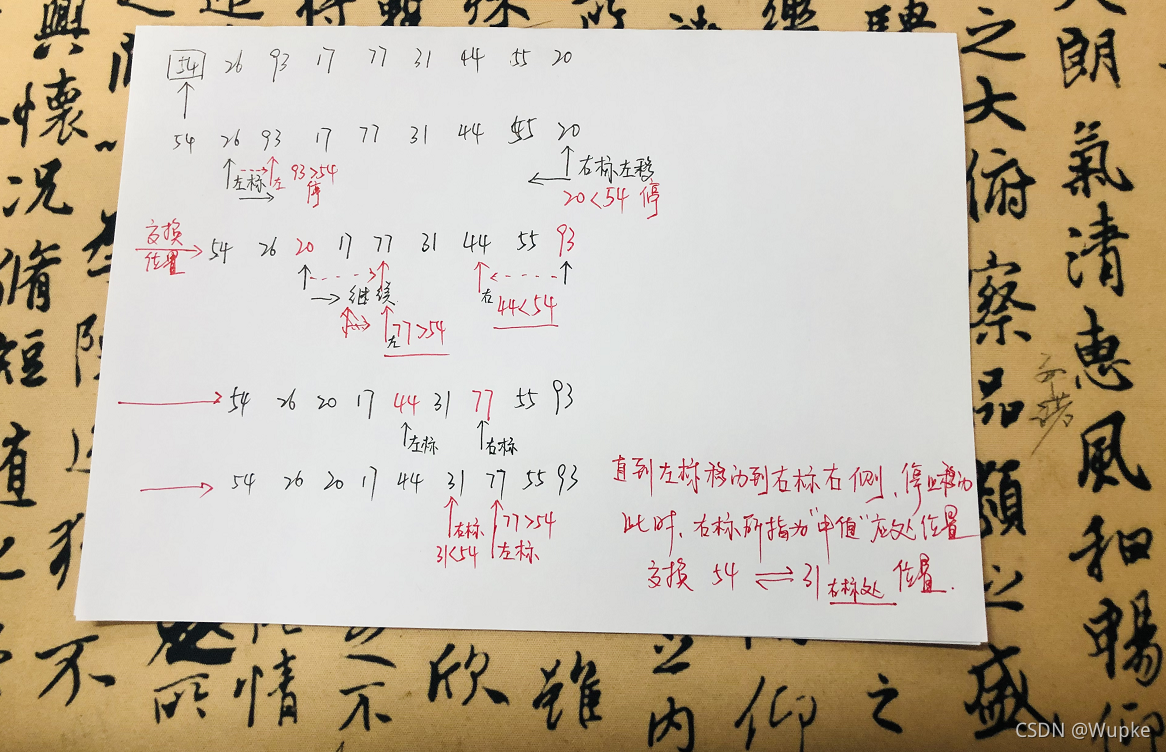 54 26 93 17 77 31 44 55 20
54 26 93 17 77 31 44 55 20
左标 左 93>54 停
右标左移
20<54 停
交换位置 54 26 20 17 77 31 44 55 93
继续
右 44<54
左 77>54
54 26 20 17 44 31 77 55 93
左标 右标
54 26 20 17 44 31 77 55 93
右标 31<54
77>54 左标
直到左标移动到右标右侧,停止移动
此时,右标所指为“中值”应处位置
交换 54 ⇌ 31 右标处 位置.
之大俯察品類之盛
朗氣清惠風和暢仰
興懷
况脩短
不
情
之不
欣
雖
内
仰
之
CSDN @Wupke